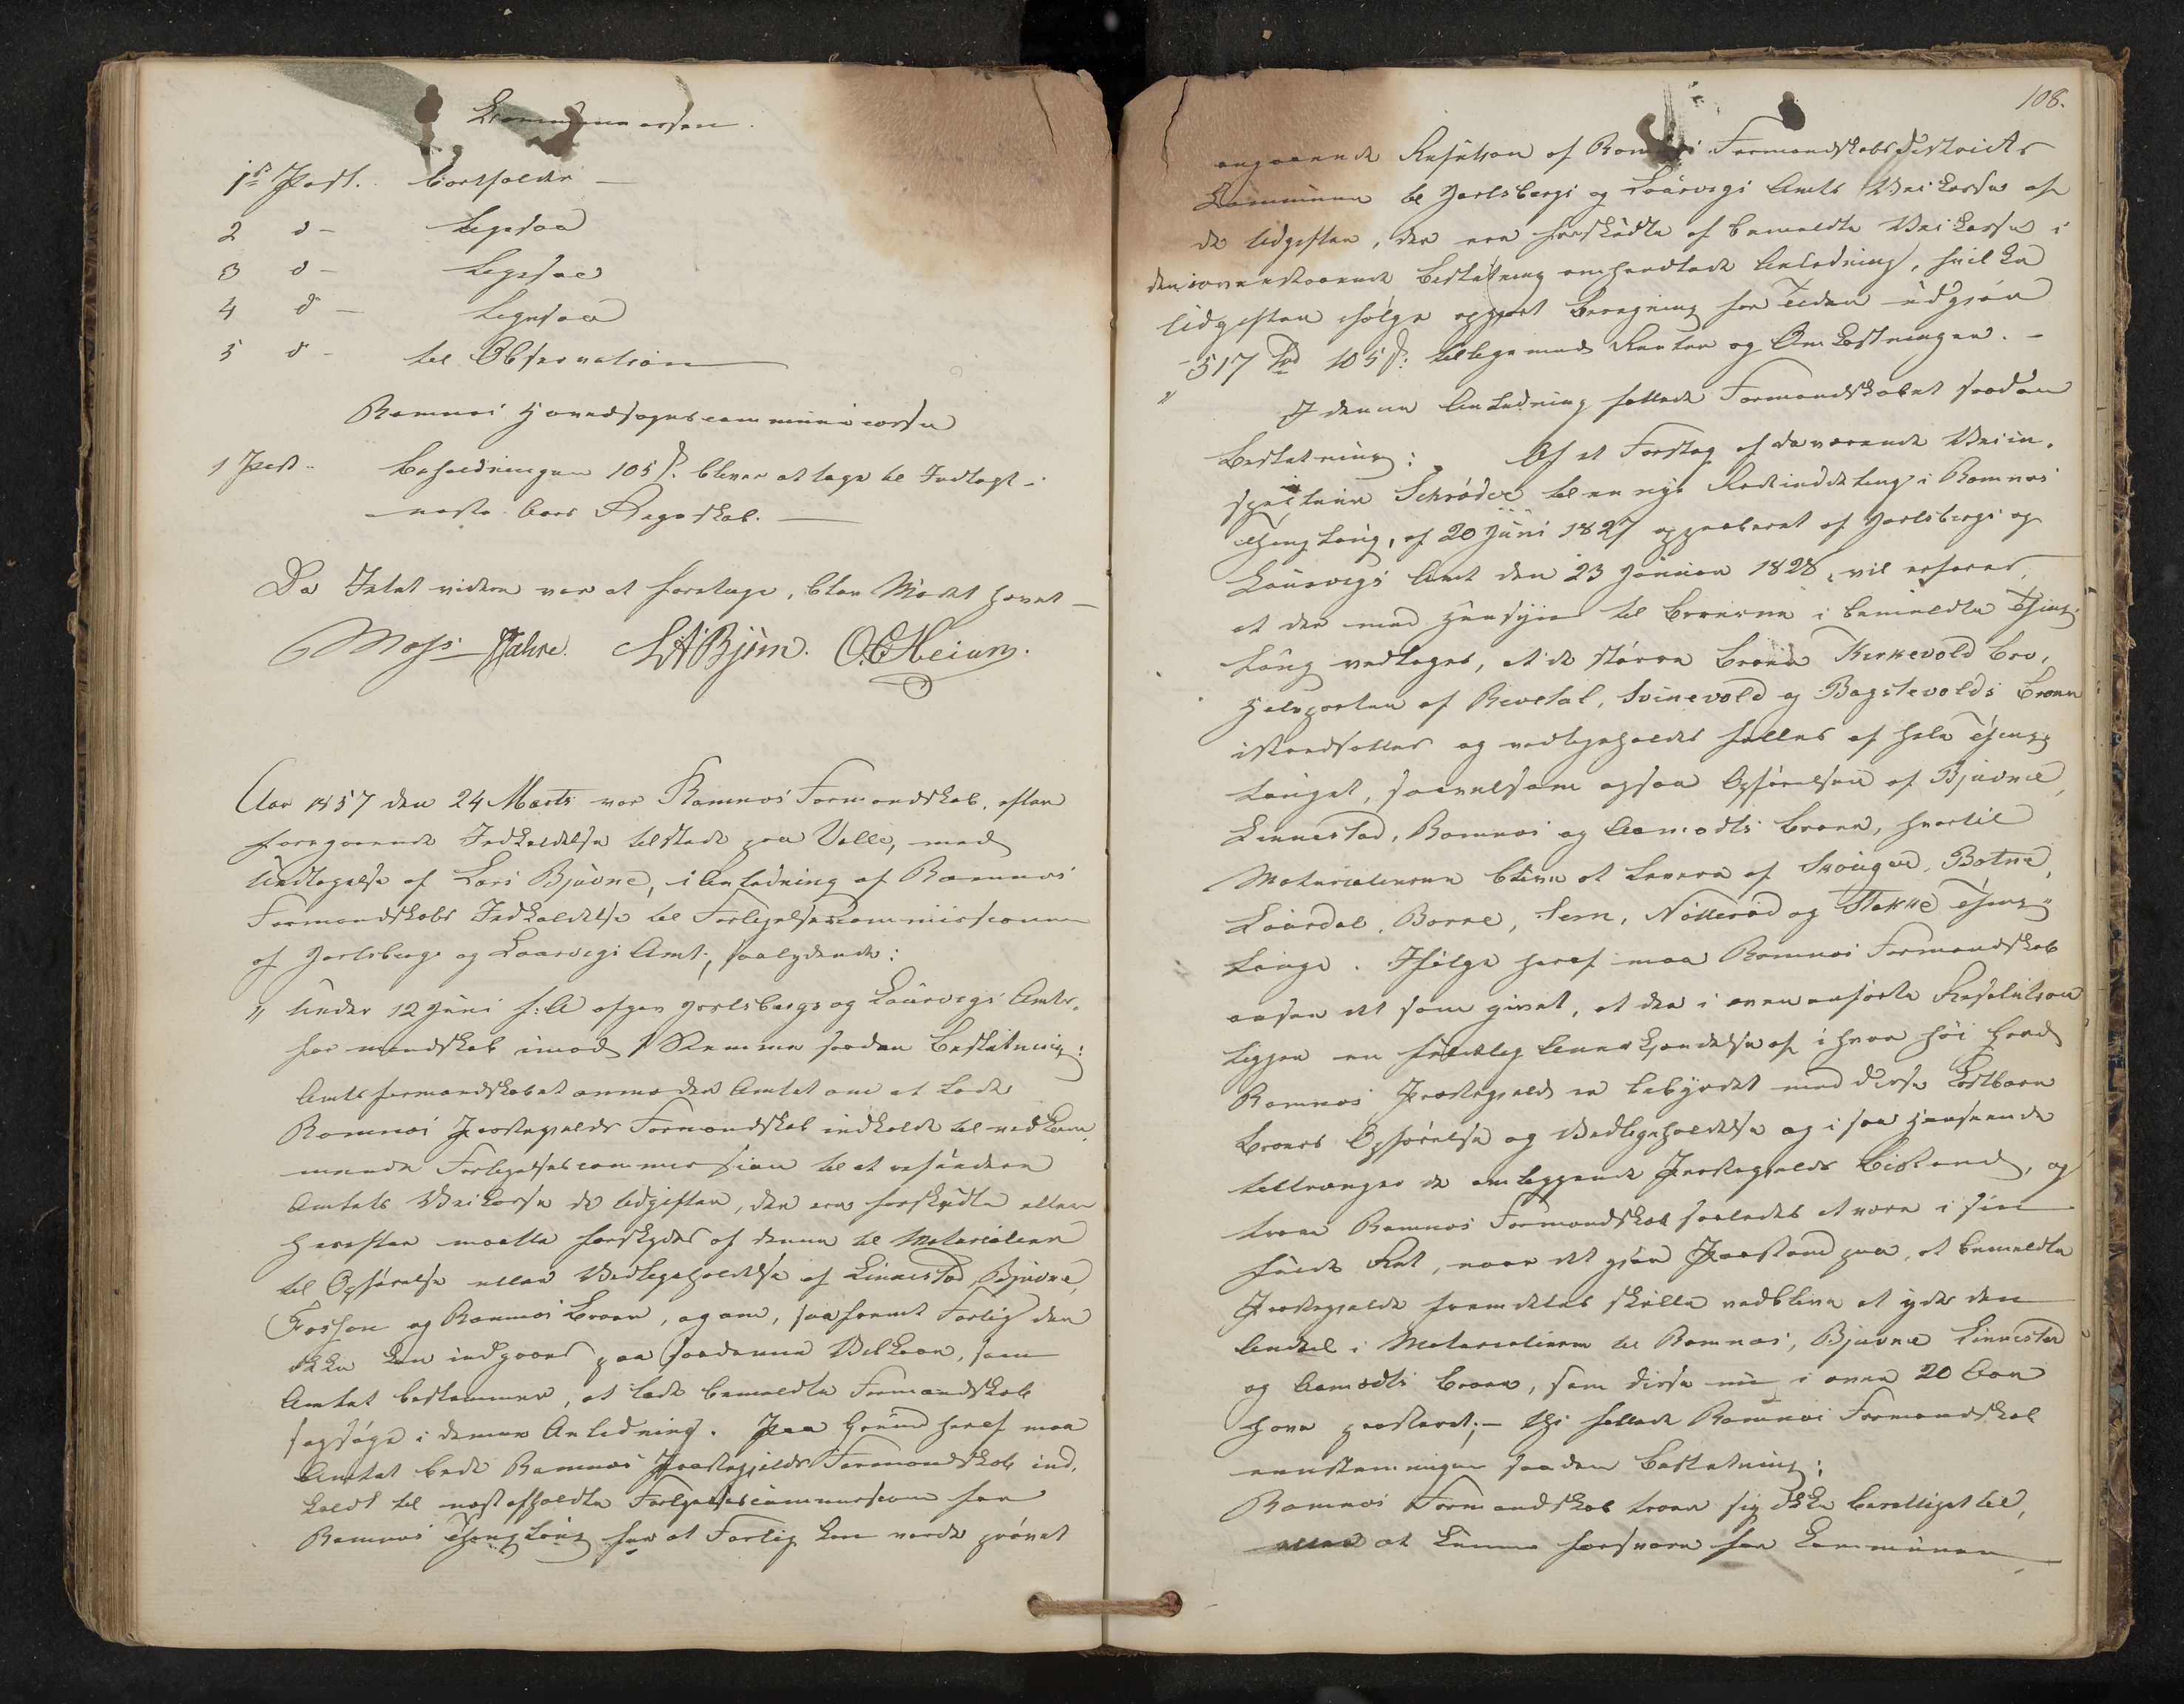 Communecassen.
1ste Post. bortfalder —
2 d – Ligesaa
3 d – Ligesaa
4 d – Ligesaa
5 d – til Observation
Ramnæs Hovedsognscommunecasse
1 Post.. Beholdningen 105 ß. bliver at tage til Indtægt i
næste Aars Regnskab. —
Da Intet videre var at foretage, blev Mødet hævet —
O. C. Heium.
Aar 1857 den 24 Marts var Ramnæs Formandskab, efter
foregaaende Indkaldelse tilstede paa Valle, med
Undtagelse af Lars Bjuvne, i Anledning af Ramnæs
Formandskabs Indkaldelse til Forligelsescommissionen
af Jarlsbergs og Laurvigs Amt, saalydende:
" Under 12 Juni f: A afgav Jarlsbergs og Laurvigs Amts-
formandskab imod 1 Stemme saadan Beslutning:
Amtsformandskabet anmoder Amtet om at lade
Ramnæs Præstegjelds Formandskab indkalde til vedkom-
mende Forligelsescommission til at refundere
Amtets Veikasse de Udgifter, der ere forskudte eller
herefter maatte forskydes af denne til Materialier
til Opførelse eller Vedligeholdelse af Linnestad, Bjuvne,
Fossan og Ramnæs Broer, og om, saafremt Forlig der
ikke kan indgaaes paa saadanne Vilkaar, som
Amtet bestemmer, at lade bemeldte Formandskab
sagsøge i denne Anledning. Paa Grund heraf maa
Amtet bede Ramnæs Præstegjelds Formandskab ind-
kaldt til næstafholdte Forligelsescommission for
Ramnæs Thinglaug for at Forlig kan vorde prøvet
108.
angaaende Refusion af Ramnæs Formandskabsdistricts
Commune til Jarlsbergs og Laurvigs Amts Veikasse af
de Udgifter, der ere forskudte af bemeldte Veikasse i
den i ovenstaaende Beslutning omhandlede Anledning, hvilke
Udgifter ifølge opgjort Beregning for Tiden udgjør
" 517 Spd 105 ß: tilligemed Renter og Omkostninger. –
I denne Anledning fattede Formandskabet saadan
Beslutning: Af et Forslag af daværende Veiin-
specteur Schrøder til en nye Rodeinddeling i Ramnæs
Thinglaug, af 20 Juni 1827 approberet af Jarlsbergs og
Laurvigs Amt den 23 Januar 1828, vil erfares,
at der med Hensyn til Broerne i bemeldte Thing-
laug vedtoges, at de større Broer Kirkevold Bro,
Halvparten af Revetal, Svinevold og Bogstevolds Broer
istandsættes og vedligeholdes fælles af hele Thing-
lauget, saavelsom ogsaa Opførelsen af Bjuvne,
Linnestad, Ramnæs og Aamodts Broer, hvortil
Materialierne bliver at levere af Skouger, Botne,
Laurdal, Borre, Sem, Nøtterød og Stokke Thing-
lauge. Ifølge heraf maa Ramnæs Formandskab
ansee det som givet, at der i ovenanførte Resolution
ligger en fuldelig Anerkjendelse af i hvor høi Grad
Ramnæs Præstegjeld er bebyrdet med disse kostbare
Broers Opførelse og Vedligeholdelse og i saa Henseende
tiltrænger de omliggende Præstegjelds Bistand, og
troer Ramnæs Formandskab saaledes at være i sin
fulde Ret, naar det gjør Paastand paa, at bemeldte
Præstegjelde fremdeles skulle vedblive at yde den
Andel i Materialierne til Ramnæs, Bjuvne Linnestad
og Aamodts Broer, som disse nu i over 20 Aar
have præsteret; – thi fattede Ramnæs Formandskab
eenstemmigen saadan Beslutning:
Ramnæs Formandskab troer sig ikke berettiget til,
eller at kunne forsvare for Communen